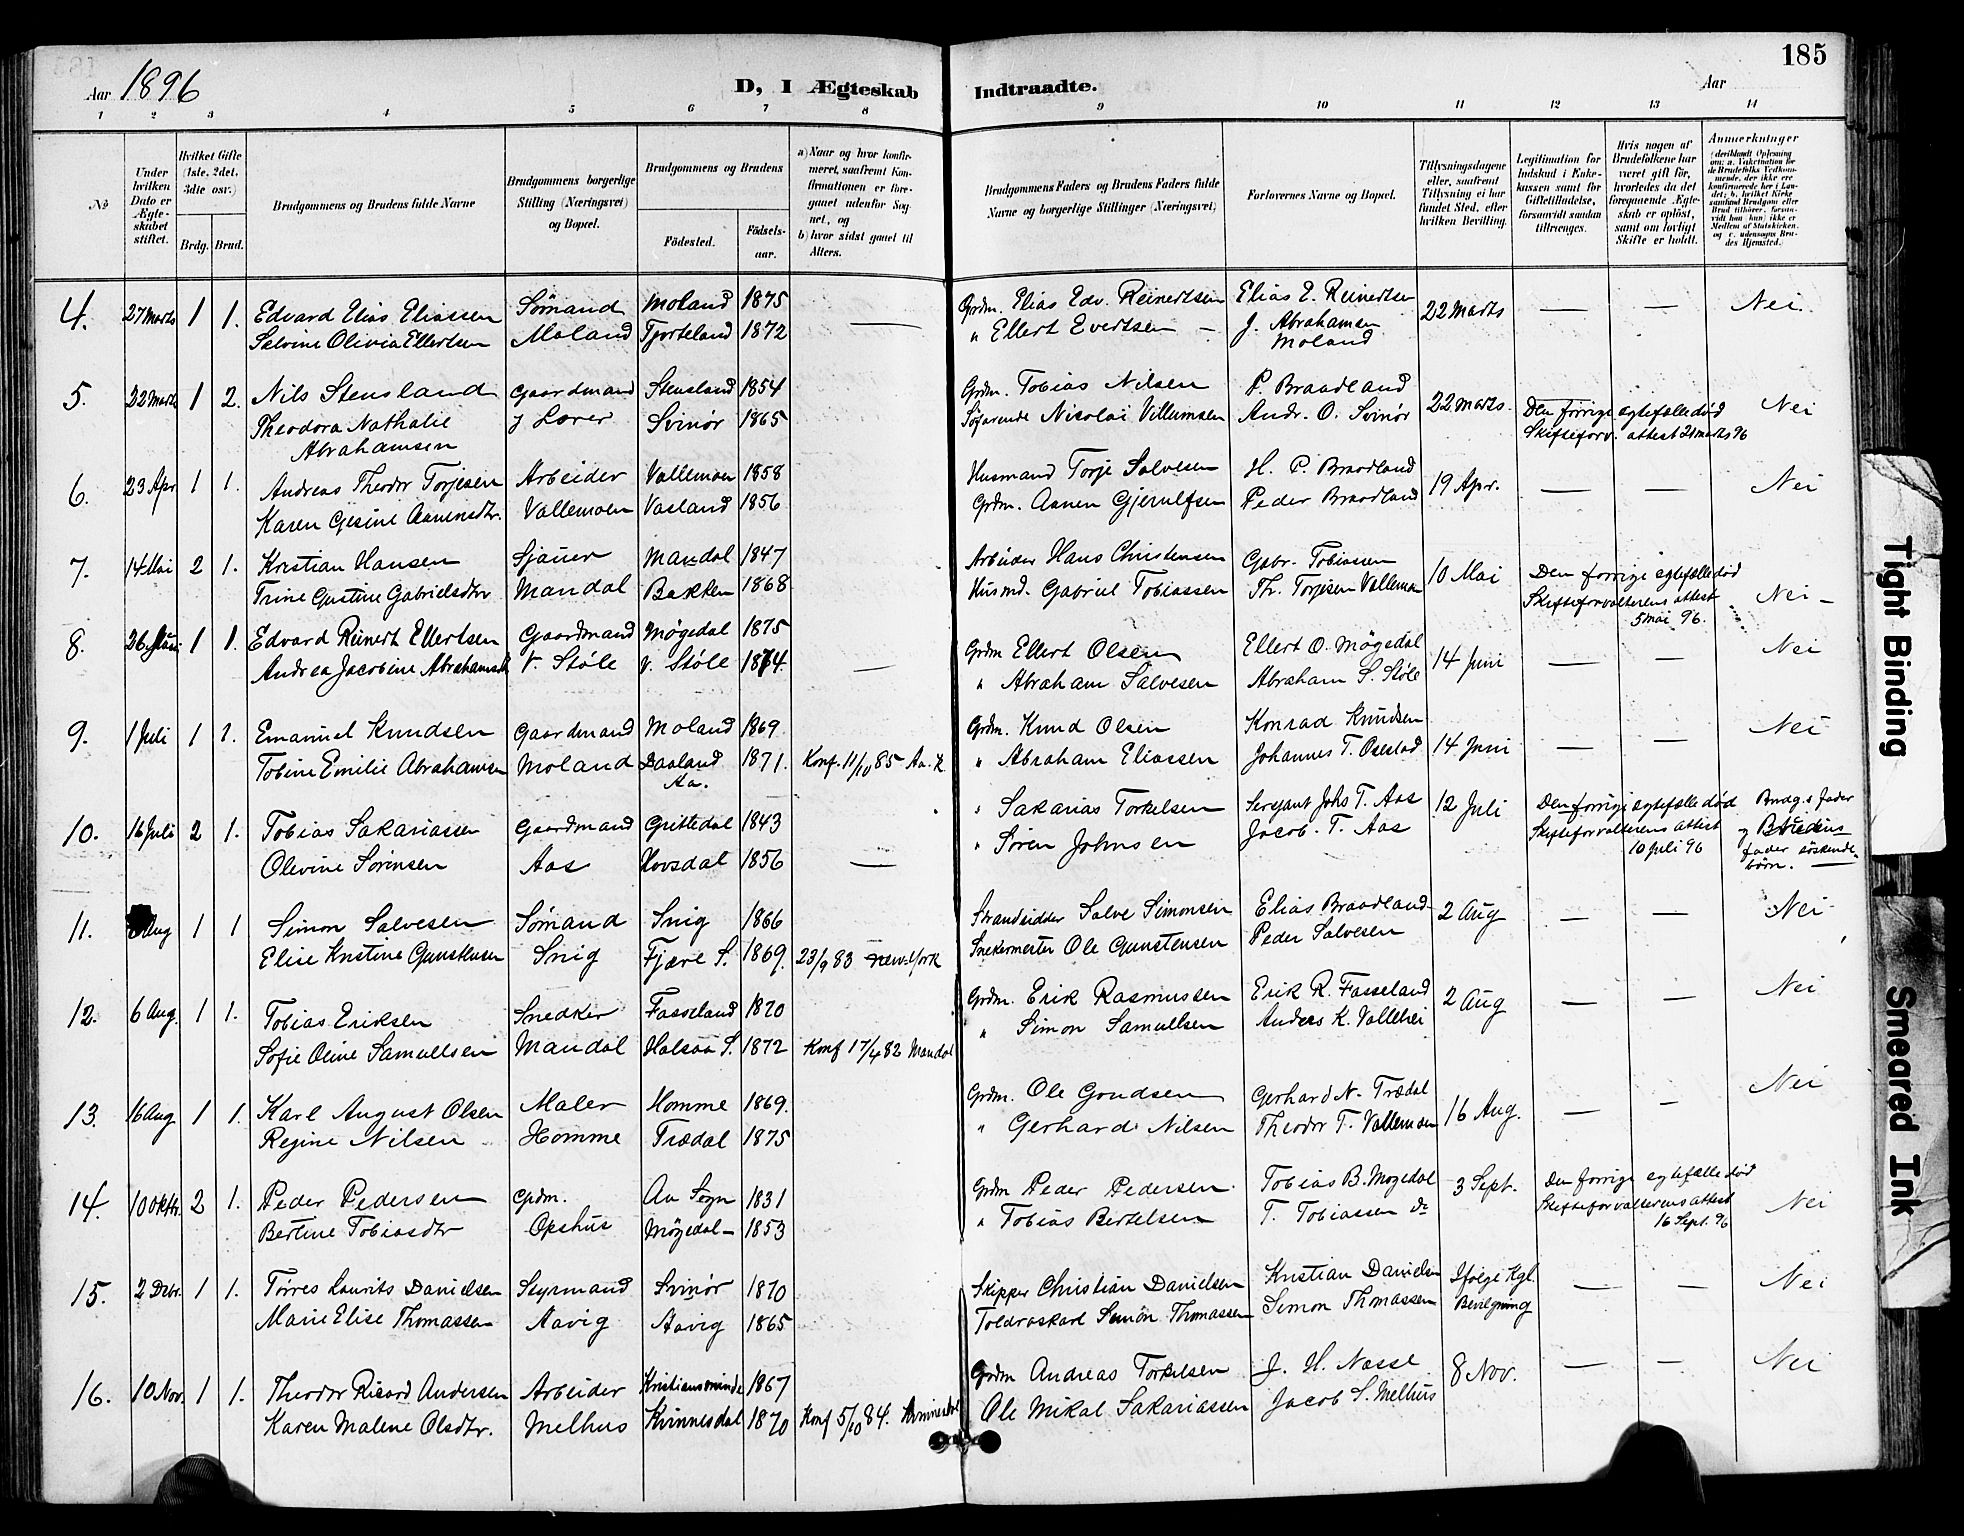 185
Aar 1896 D, I Ægteskab Indtraadte. Aar
1 2 3 4 5 6 7 8 9 10 11 12 13 14
No
Under hvilken Dato er Ægteskabet stiftet.
Hvilket Gifte (1ste, 2det, 3die osv.)
Brdg. Brud.
Brudgommens og Brudens fulde Navne
Brudgommens borgerlige Stilling (Næringsvei) og Bopæl.
Brudgommens og Brudens
Födested. Födselsaar.
a) Naar og hvor konfirmeret, saafremt Konfirmationen er foregaaet udenfor Sognet, og
b) hvor sidst gaaet til Alters.
Brudgommens Faders og Brudens Faders fulde Navne og borgerlige Stillinger (Næringsvei)
Forlovernes Navne og Bopæl.
Tillysningsdagene eller, saafremt Tillysning ei har fundet Sted, efter hvilken Bevilling.
Legitimation for Indskud i Enkekassen samt for Giftetilladelse, forsaavidt saadan tiltrænges.
Hvis nogen af Brudefolkene har været gift før, hvorledes da det foregaaende Ægteskab er oplöst, samt om lovligt Skifte er holdt.
Anmerkninger
4. 27 Marts 1 1. Edvard Elias Eliassen Sømand Moland 1875 Grdm. Elias Edv. Reinertsen Elias E. Reinertsen 22 Marts — — Nei.
Selvine Olivia Ellertsen Moland Tjorteland 1872 — " Ellert Evertsen — J. Abrahamsen
Moland
5. 22 Marts 1 2. Nils Stensland Gaardmand Stensland 1854 Grdm. Tobias Nilsen P. Braadland 22 Marts. Den forrige egtefælle død Nei
Theodora Nathalie g Lærer Svinør 1865 Søfarende Nicolai Villumsen Andr. O. Svinør Skifteforv. attest 21 marts 96
Abrahamsen
6. 23 Apr 1 1. Andreas Theodor Torjesen Arbeider Vallemoen 1858 Husmand Torje Salvesen H. P. Braadland 19 Apr. — — Nei
Karen Gesine Aanensdtr. Vallemoen Vasland 1856 Grdm. Aanen Gjerulfsen Peder Braadland
7. 14 Mai 2 1. Kristian Hansen Sjauer Mandal 1847 Arbeider Hans Christensen Gabr. Tobiassen 10 Mai Den forrige egtefælle død
Trine Gustine Gabrielsdtr Mandal Bakken 1868 Husmd. Gabriel Tobiassen Th. Torjesen Vallemoen Skifteforvalterens attest Nei —
5 mai 96.
8. 26 Juni 1 1. Edvard Reinert Ellertsen Gaardmand Møgedal 1875 Grdm Ellert Olsen Ellert O. Møgedal 14 Juni — — Nei
Andrea Jacobine Abrahamsdtr V. Støle V. Støle 1874. — " Abraham Salvesen Abraham S. Støle
9. 1 Juli 1 1. Emanuel Knudsen Gaardmand Moland 1869. Grdm. Knud Olsen Konrad Knudsen 14 Juni — — Nei
Tobine Emilie Abrahamsen Moland Daaland 1871. Konf. 11/10 85 Aa. K. " Abraham Eliassen Johannes T. Osestad
Aa.
10. 16 Juli 2 1. Tobias Sakariassen Gaardmand Grittedal 1843 " Sakarias Torkelsen Sersjant Johs T. Aas 12 Juli Den forrige egtefælle død Brudg.s fader
Olevine Sørensen Aas Hovsdal 1856 — " Søren Johnsen Jacob. T. Aas Skifteforvalterens attest g Brudens
10 Juli 96 fader söskende-
börn. —
11. Aug 1 1 Simon Salvesen Sømand Snig 1866 Strandsidder Salve Simonsen Elias Braadland 2 Aug — — Nei
Elise Kristine Gunstensen Snig Fjære S. 1869. 23/9 83 New-York Snekermester Ole Gunstensen Peder Salvesen
12. 6 Aug. 1 1. Tobias Eriksen Snedker Fasseland 1870 Grdm. Erik Rasmussen Erik R. Fasseland 2 Aug — — Nei
Sofie Oline Samuelsen Mandal Halsaa S. 1872 Konf 17/4 82 Mandal " Simon Samuelsen Anders K. Vallehei
13. 16 Aug 1 1. Karl August Olsen Maler Homme 1869. Grdm. Ole Gundsen Gerhard N. Trædal 16 Aug. — — Nei
Regine Nilsen Homme Trædal 1875 " Gerhard Nilsen Theodor T. Vallemoen
14. 10 Oktbr. 2 1. Peder Pedersen Grdm. Au Sogn 1831 Grdm Peder Pedersen Tobias B. Møgedal 3 Sept. Den forrige egtefælle død Nei
Bertine Tobiasdtr Opshus Møgedal — 1853 " Tobias Bertelsen T. Tobiassen do Skifteforvalterens attest
16 Sept. 96
15. 2 Dcbr. 1 1. Tørres Laurits Danielsen Styrmand Svinør 1870 Skipper Christian Danielsen Kristian Danielsen Ifølge Kgl. — — Nei
Marie Elise Thomassen Aavig Aavig 1865 Toldroskarl Simon Thomassen Simon Thomassen Bevilgning
16. 10 Nov. 1 1. Theodor Ricard Andersen Arbeider Kristiansminde 1867 Grdm Andreas Torkelsen J. H. Nasse 8 Nov. — — Nei
Karen Malene Olsdtr. Melhus Kvinnesdal 1870 Konf 5/10 84. Kvinnesdal Ole Mikal Sakariassen Jacob S. Melhus
Tight Binding
Smeared Ink